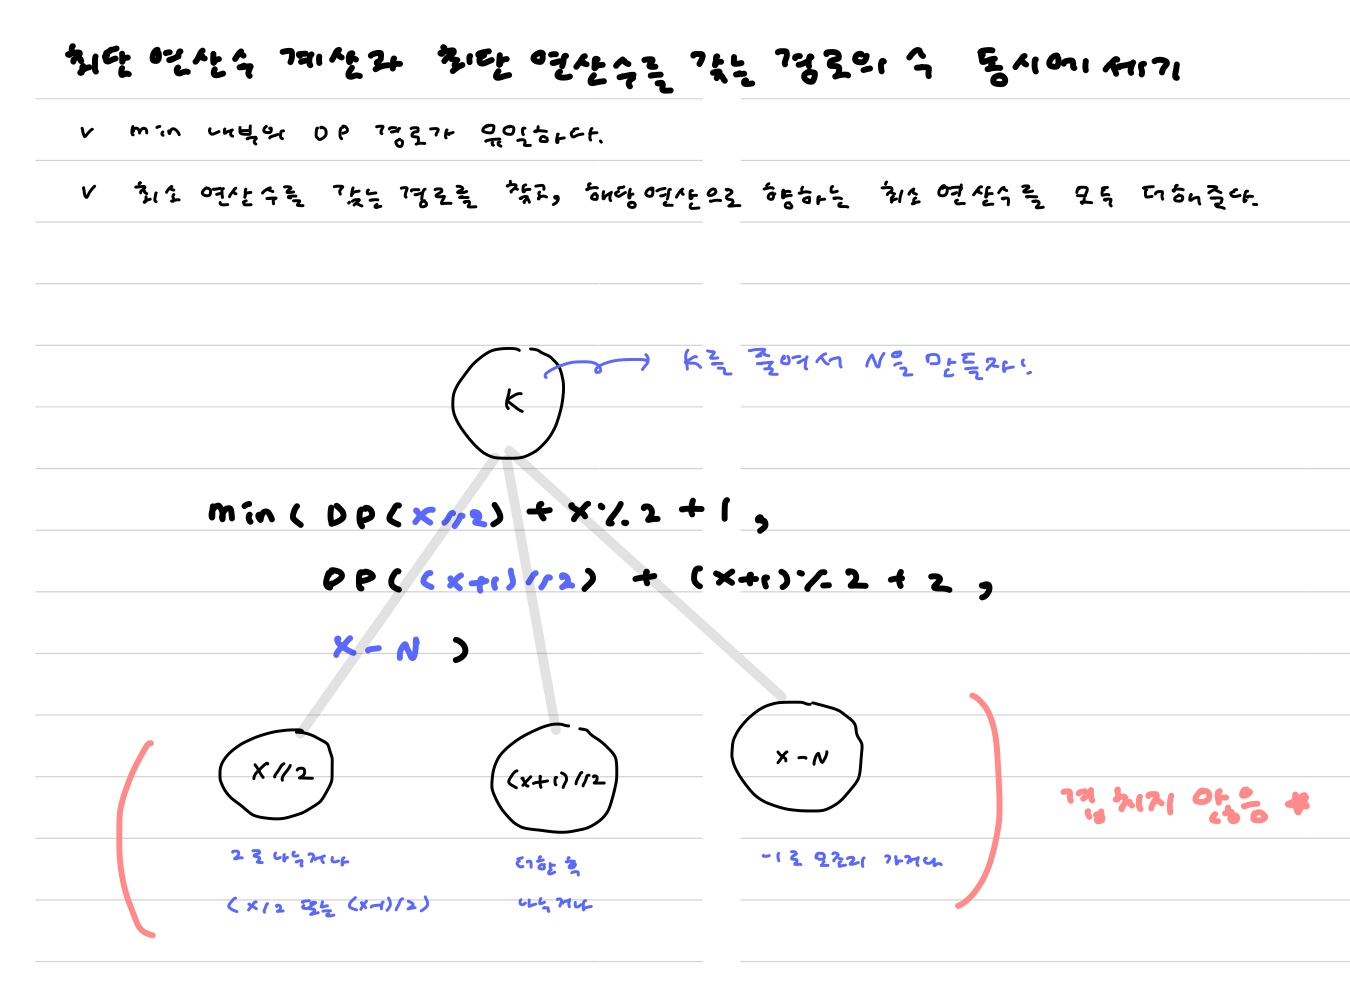 최단 연산수 계산과 최단 연산수를 갖는 경로의 수 동시에 세기
v min 내부의 DP 경로가 유일하다.
v 최소 연산수를 갖는 경로를 찾고, 해당연산으로 향하는 최소 연산수를 모두 더해준다.
K
K를 줄여서 N을 만들자!
min( DP(x//2) + x%2 + 1 ,
DP( (x+1)//2) + (x+1)%2 + 2 ,
x-N )
x//2
(x+1)//2
x-N
겹치지 않음 *
2로 나누거나
(x/2 또는 (x-1)/2)
더한 후
나누거나
-1로 모조리 가거나